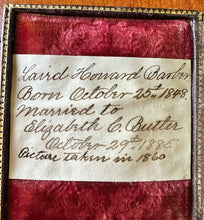 Laird Howard Barber
Born October 25th 1848.
Married to
Elizabeth C. Butler
October 29th 1885.
Picture taken in 1860